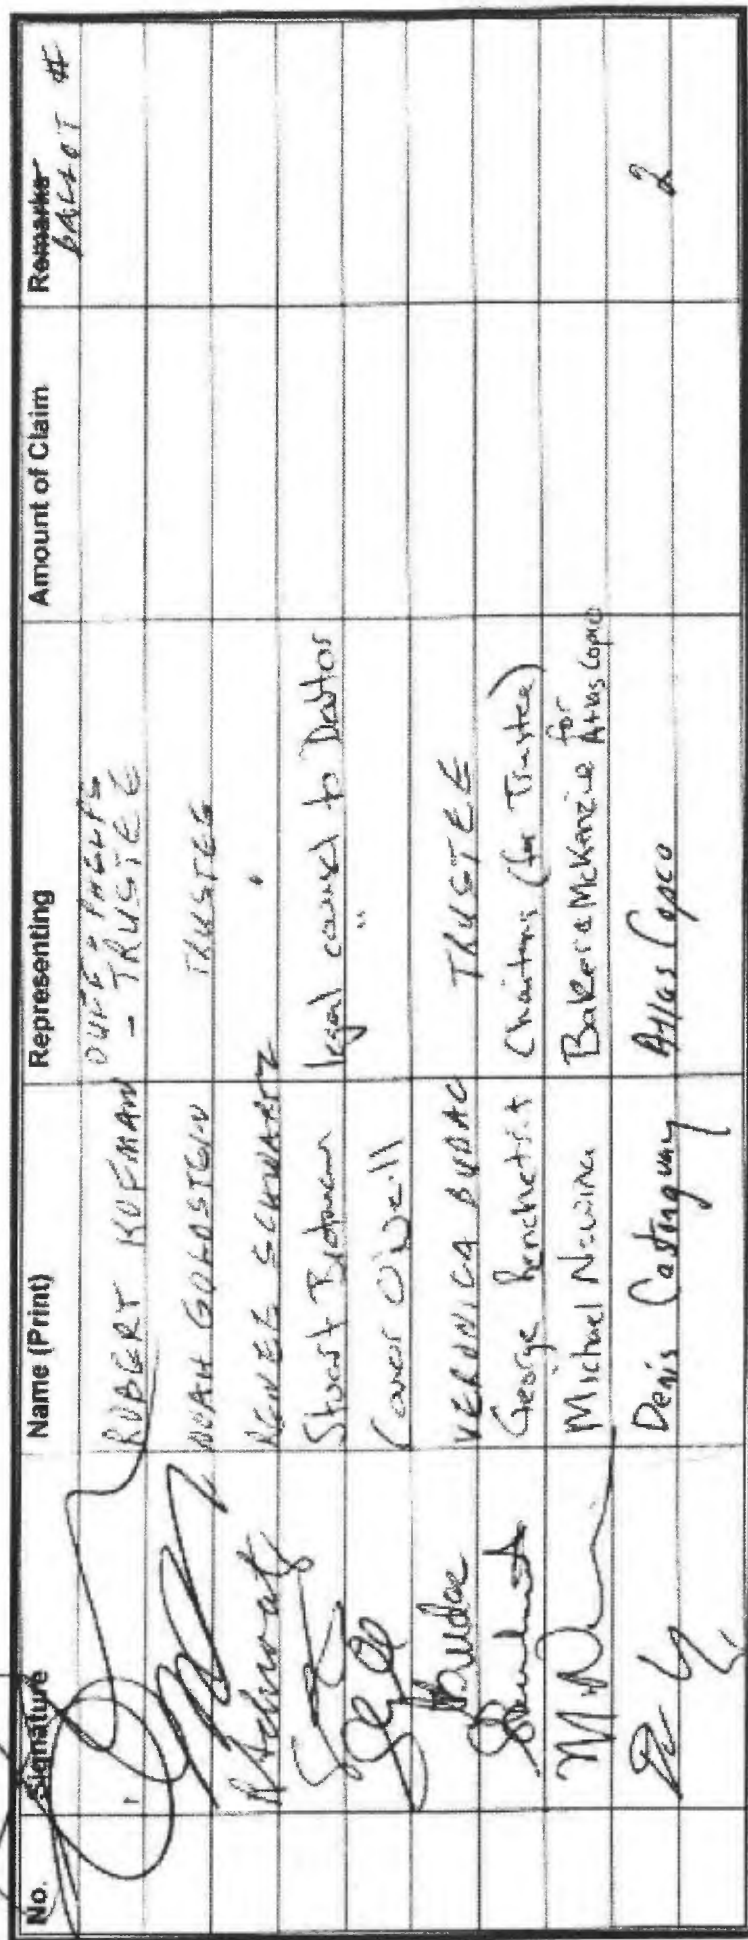 No. Signature Name (Print) Representing Amount of Claim Remarks
BALLOT #
ROBERT KOFMAN DUFF & PHELPS - TRUSTEE
NOAH GOLDSTEIN TRUSTEE
RENEE SCHWARTZ "
Stuart legal counsel to Debtor
Conor O'Neill "
VERONICA BUDAC TRUSTEE
George Benchetrit Chaitons (for Trustee)
Michael Nowina Baker & McKenzie for Atlas Copco
Denis Castonguay Atlas Copco 2